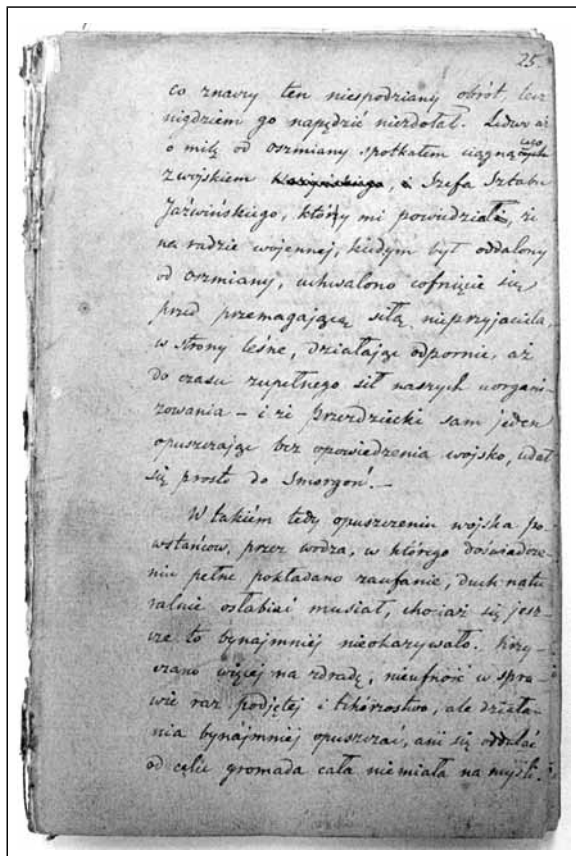 25.
co znavzy ten niespodziany obrót, lecz
nigdziem go napędzić niezdołał. Ledwo aż
o milę od Oszmiany spotkałem ciągnącego
z wojskiem Szefa Sztabu
Jaźwińskiego, który mi powiedział, że
na radzie wojennej, kiedym był oddalony
od Oszmiany, uchwalono cofnięcie się
przed przemagającą siłą nieprzyjaciela,
w strony leśne, działając odpornie, aż
do czasu zupełnego sił naszych uorgani-
zowania – i że Przezdziecki sam jeden
opuszczając bez opowiedzenia wojsko, udał
się prosto do Smorgoń. –
W takiém tedy opuszczeniu wojska po-
wstańców, przez wodza, w którego doświadcze-
niu pełne pokładano zaufanie, duch natu-
ralnie osłabiać musiał, chociaż się jesz-
cze to bynajmniéj nieokazywało. Krzy-
czano więcéj na zdradę, nieufność w spra-
wie raz podjętej i tchórzostwo, ale działa-
nia bynajmniéj opuszczać, ani się oddalać
od celu gromada cała niemiała na myśli.